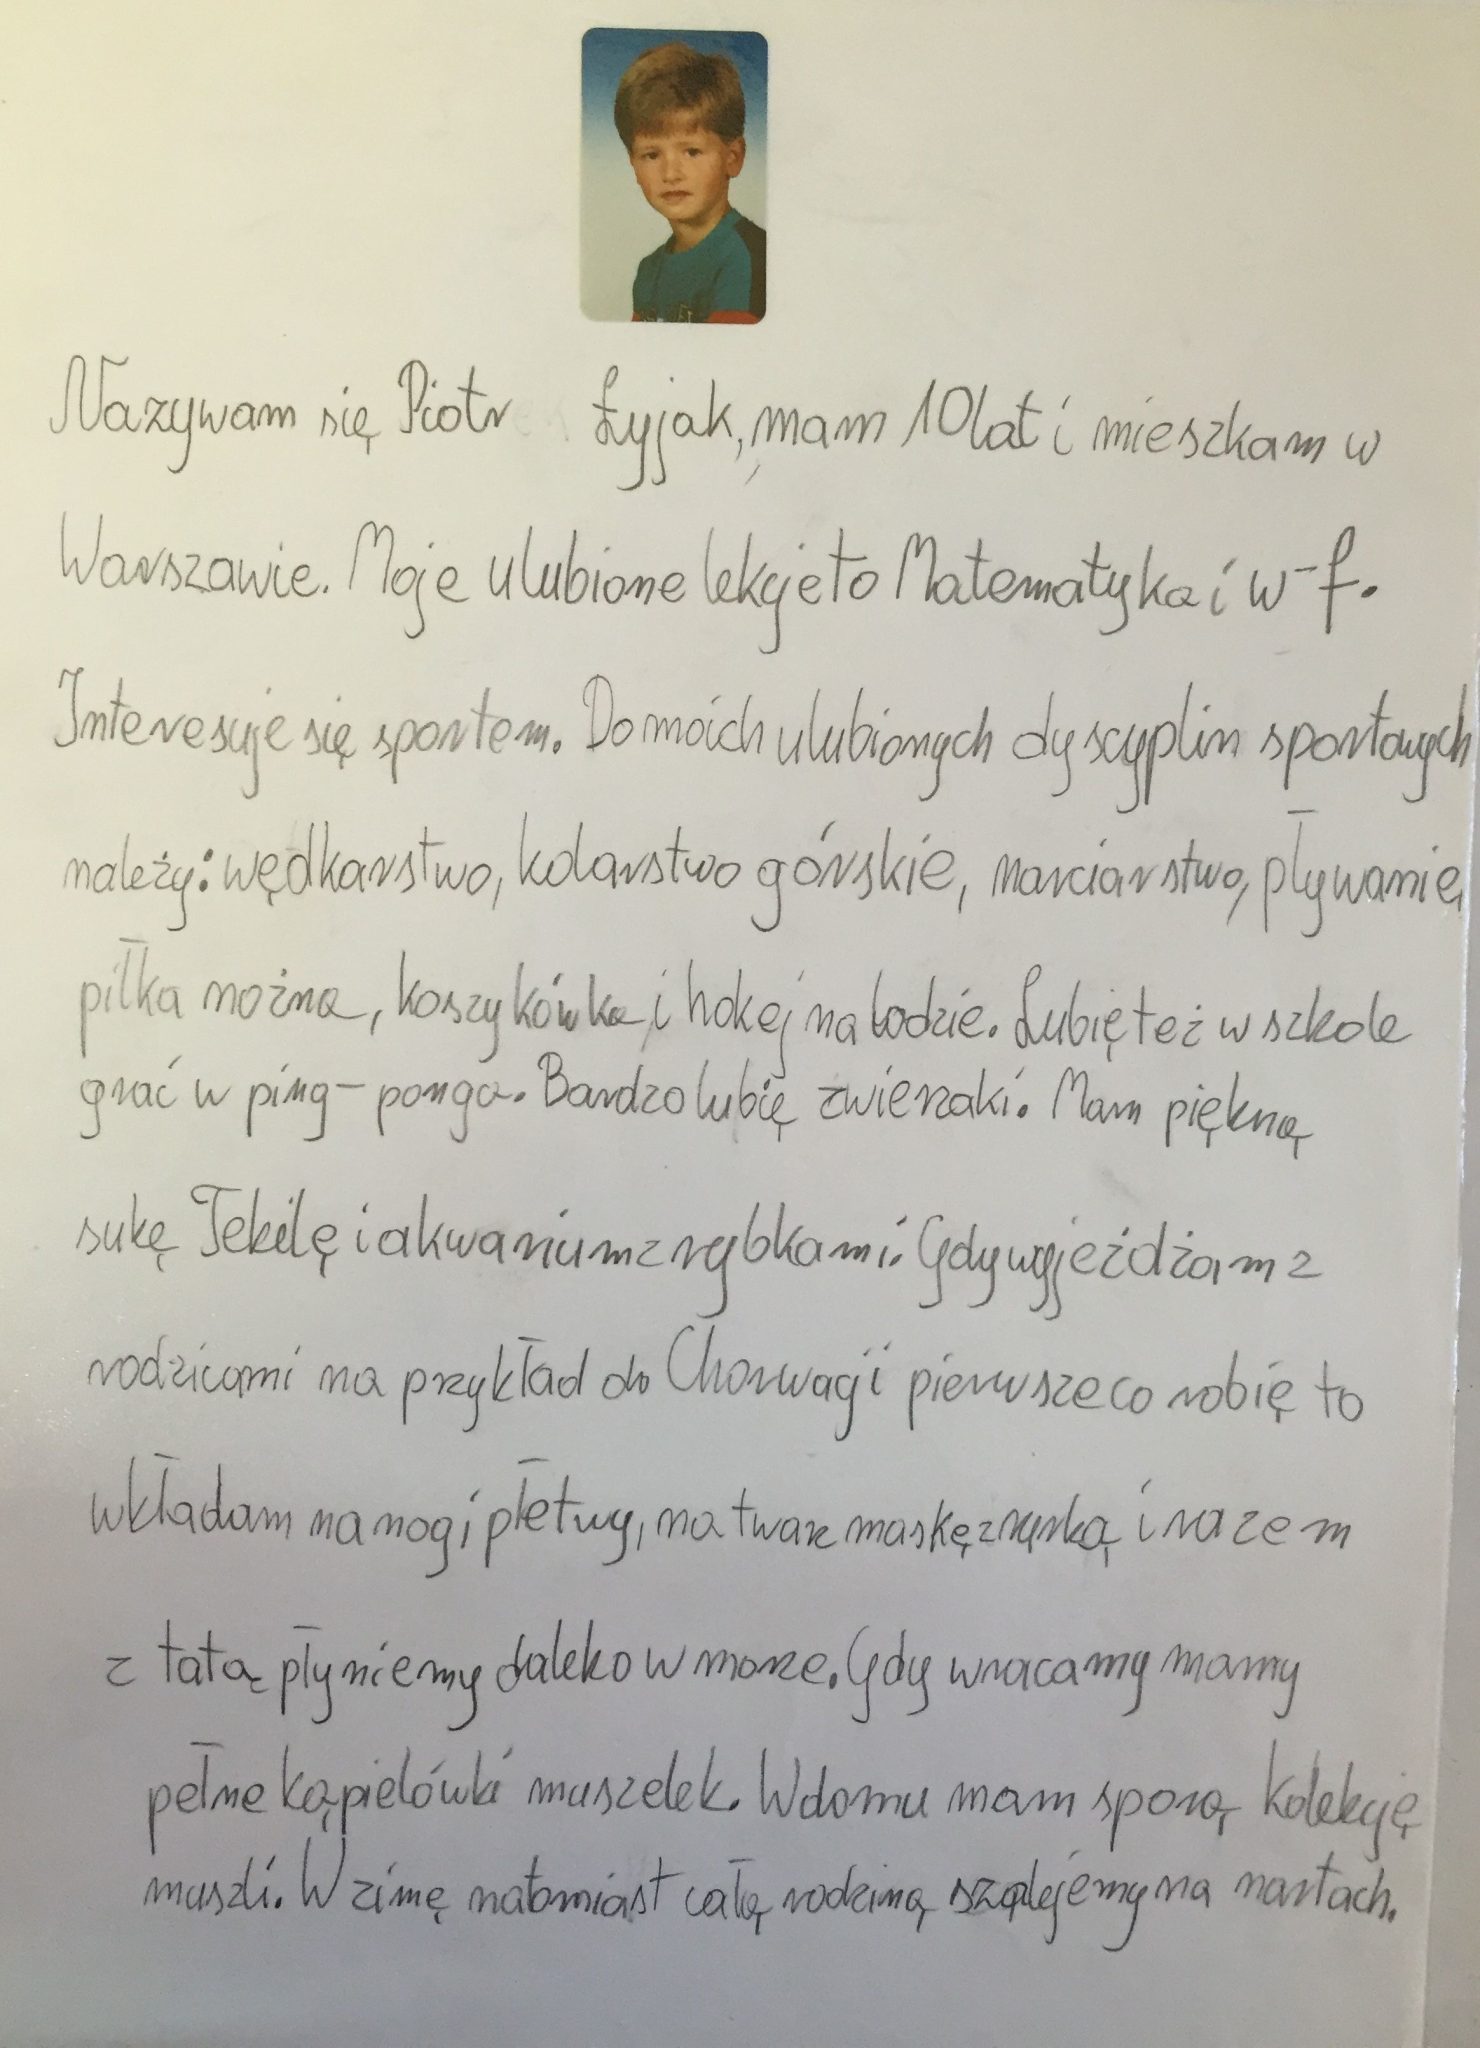 Nazywam się Piotr Łyjak, mam 10 lat i mieszkam w
Warszawie. Moje ulubione lekcje to Matematyka i w-f.
Interesuje się sportem. Do moich ulubionych dyscyplin sportowych
należy: wędkarstwo, kolarstwo górskie, narciarstwo, pływanie,
piłka nożna, koszykówka i hokej na lodzie. Lubię też w szkole
grać w ping-ponga. Bardzo lubię zwierzaki. Mam piękną
sukę Tekilę i akwarium z rybkami. Gdy wyjeżdżam z
rodzicami na przykład do Chorwacji pierwsze co robię to
wkładam na nogi płetwy, na twarz maskę z rurką i razem
z tatą płyniemy daleko w morze. Gdy wracamy mamy
pełne kąpielówki muszelek. W domu mam sporą kolekcję
muszli. W zimę natomiast całą rodziną szalejemy na nartach.